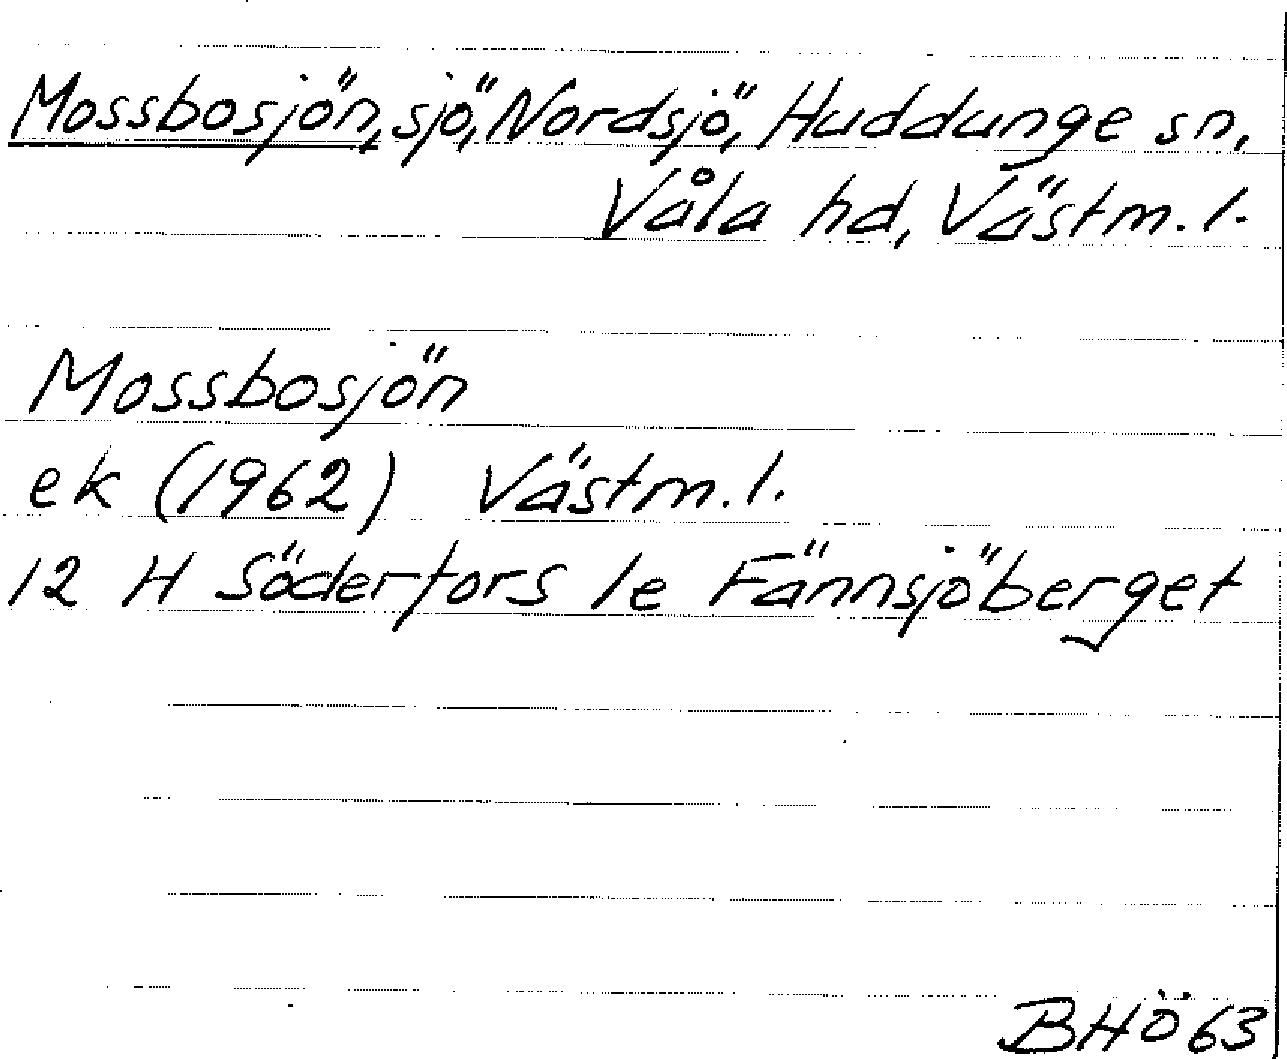 Mossbosjön, sjö, Nordsjö, Huddunge sn,
Våla hd, Västm. l.
Mossbosjön
ek (1962) Västm. l.
12 H Söderfors 1e Fännsjöberget
BHÖ 63